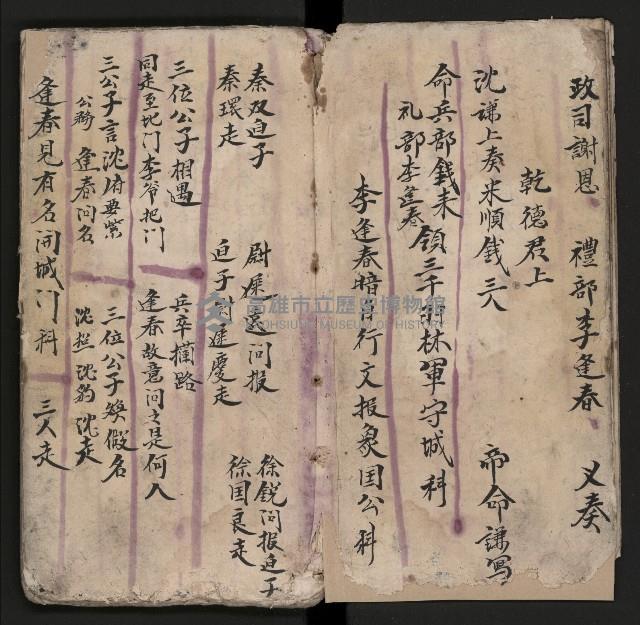 政司謝恩 禮部李逢春 又奏
乾德君上
沈謙上奏米順錢三人 帝命謙寫
命兵部錢耒領三千羽林軍守城科
礼部李逢春
李逢春暗 行文报众国公科
秦双迫子 尉 迟问报 徐锐问报迫子
秦環走 迫子 遲慶走 徐国良走
三位公子相遇 兵卒攔路
同走至北门李爷把门 逢春故意问之是何人
三公子言沈府要紧 三位公子焕假名
公務 逢春问名 沈 沈豹沈走
逢春見有名闭城门科 三人走
高雄市立歷史博物館
KAOHSIUNG MUSEUM OF HISTORY